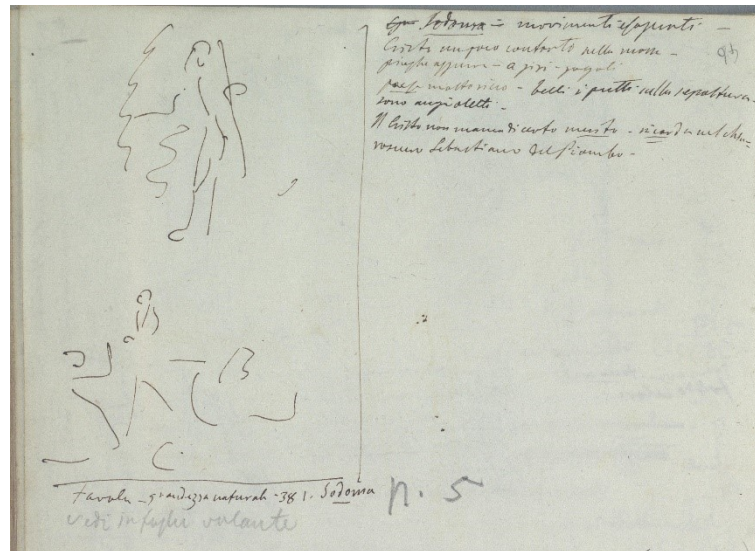 Sodoma = movimenti esagerati -
Cristo un poco contorto nella mossa -
pieghe appena - a giri -
paese molto ricco - belli i putti nella sepoltura -
sono angioletti -
Il Cristo non manca di certo merito - ricorda nel chia=
roscuro Sebastiano del Piombo -
Tavola - grandezza naturale - 381. Sodoma
vedi in foglio volante
p. 5